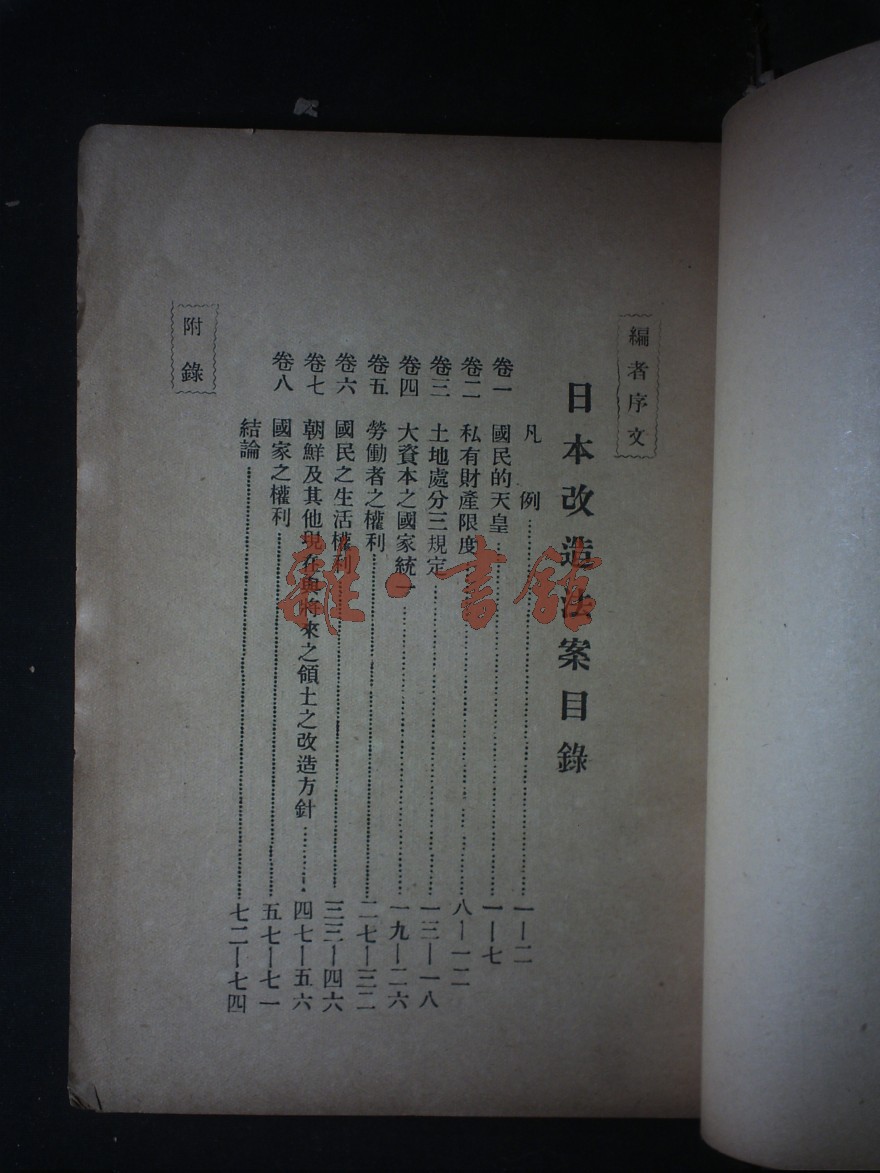 編者序文
日本改造法案目錄
凡例 一—二
卷一 國民的天皇 一—七
卷二 私有財產限度 八—一二
卷三 土地處分三規定 一三—一八
卷四 大資本之國家統一 一九—二六
卷五 勞働者之權利 二七—三二
卷六 國民之生活權利 三三—四六
卷七 朝鮮及其他現在與將來之領土之改造方針 四七—五六
卷八 國家之權利 五七—七一
結論 七二—七四
附錄
雜·書館